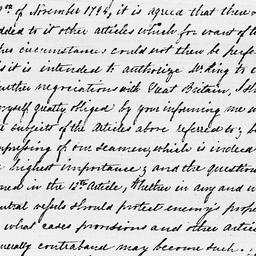 th of November 1794, it is agreed that there
added to it other articles which for want of t
circumstances could not then be perfe
is it is intended to authorize Mr King to
further negociations with Great Britain, I sh
myself greatly obliged by your informing me
the subjects of the Articles above refered to; b
impressing of our seamen, which is indeed
highest importance; and the question
in the 12th Article, Whether in any and w
neutral vessels should protect enemy's prope
what cases provisions and other artic
generally contraband may become such.